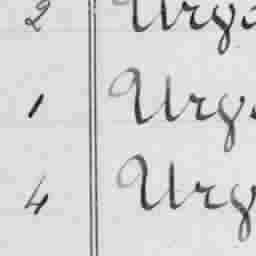 2 Urga
1 Urg
4 Urg